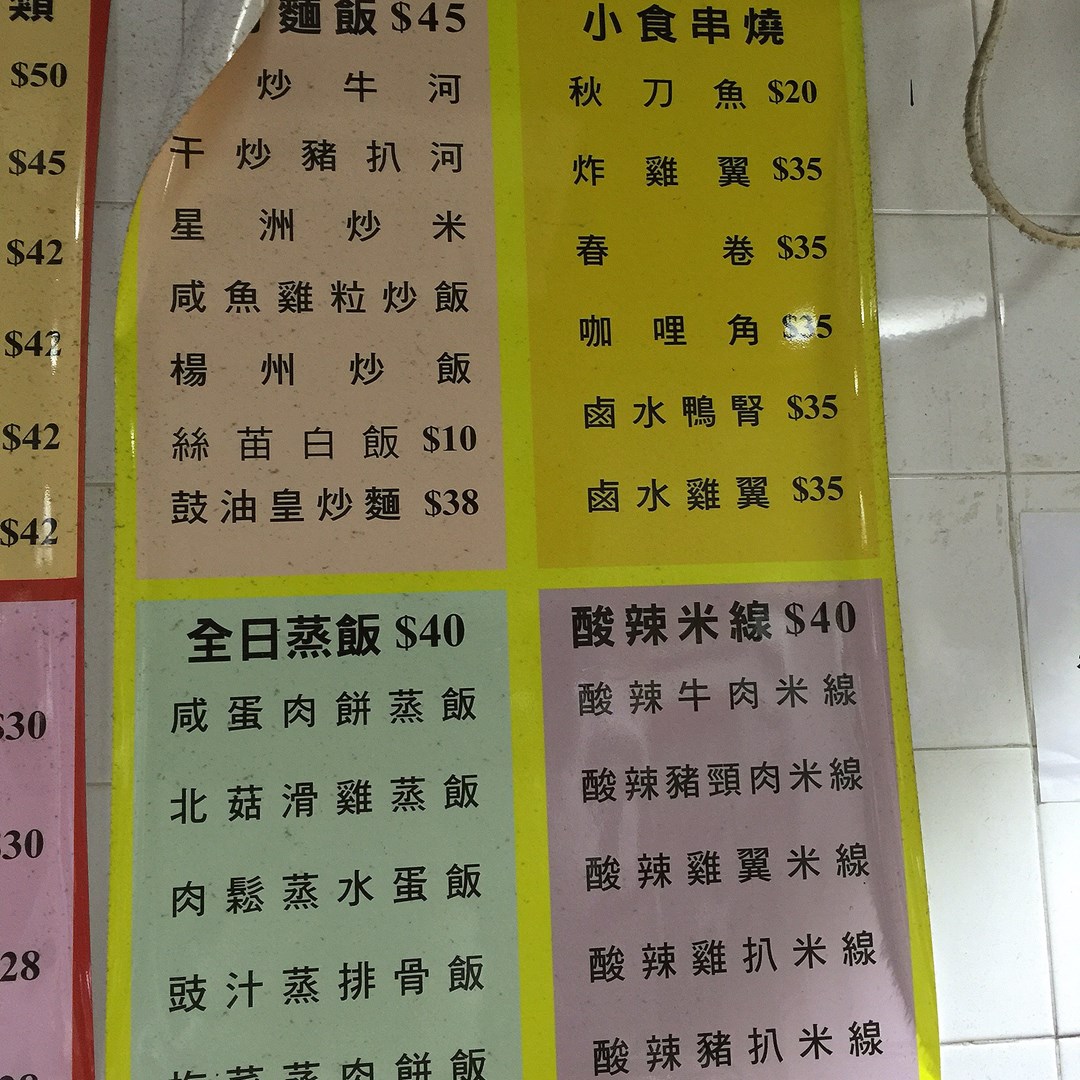 類
$50
$45
$42
$42
$42
$42
$30
$30
28
麵飯 $45
炒牛河
干炒豬扒河
星洲炒米
咸魚雞粒炒飯
楊州炒飯
絲苗白飯 $10
鼓油皇炒麵 $38
小食串燒
秋刀魚 $20
炸雞翼 $35
春卷 $35
咖哩角 $35
鹵水鴨腎 $35
鹵水雞翼 $35
全日蒸飯 $40
咸蛋肉餅蒸飯
北菇滑雞蒸飯
肉鬆蒸水蛋飯
豉汁蒸排骨飯
菜蒸肉餅飯
酸辣米線 $40
酸辣牛肉米線
酸辣豬頸肉米線
酸辣雞翼米線
酸辣雞扒米線
酸辣豬扒米線